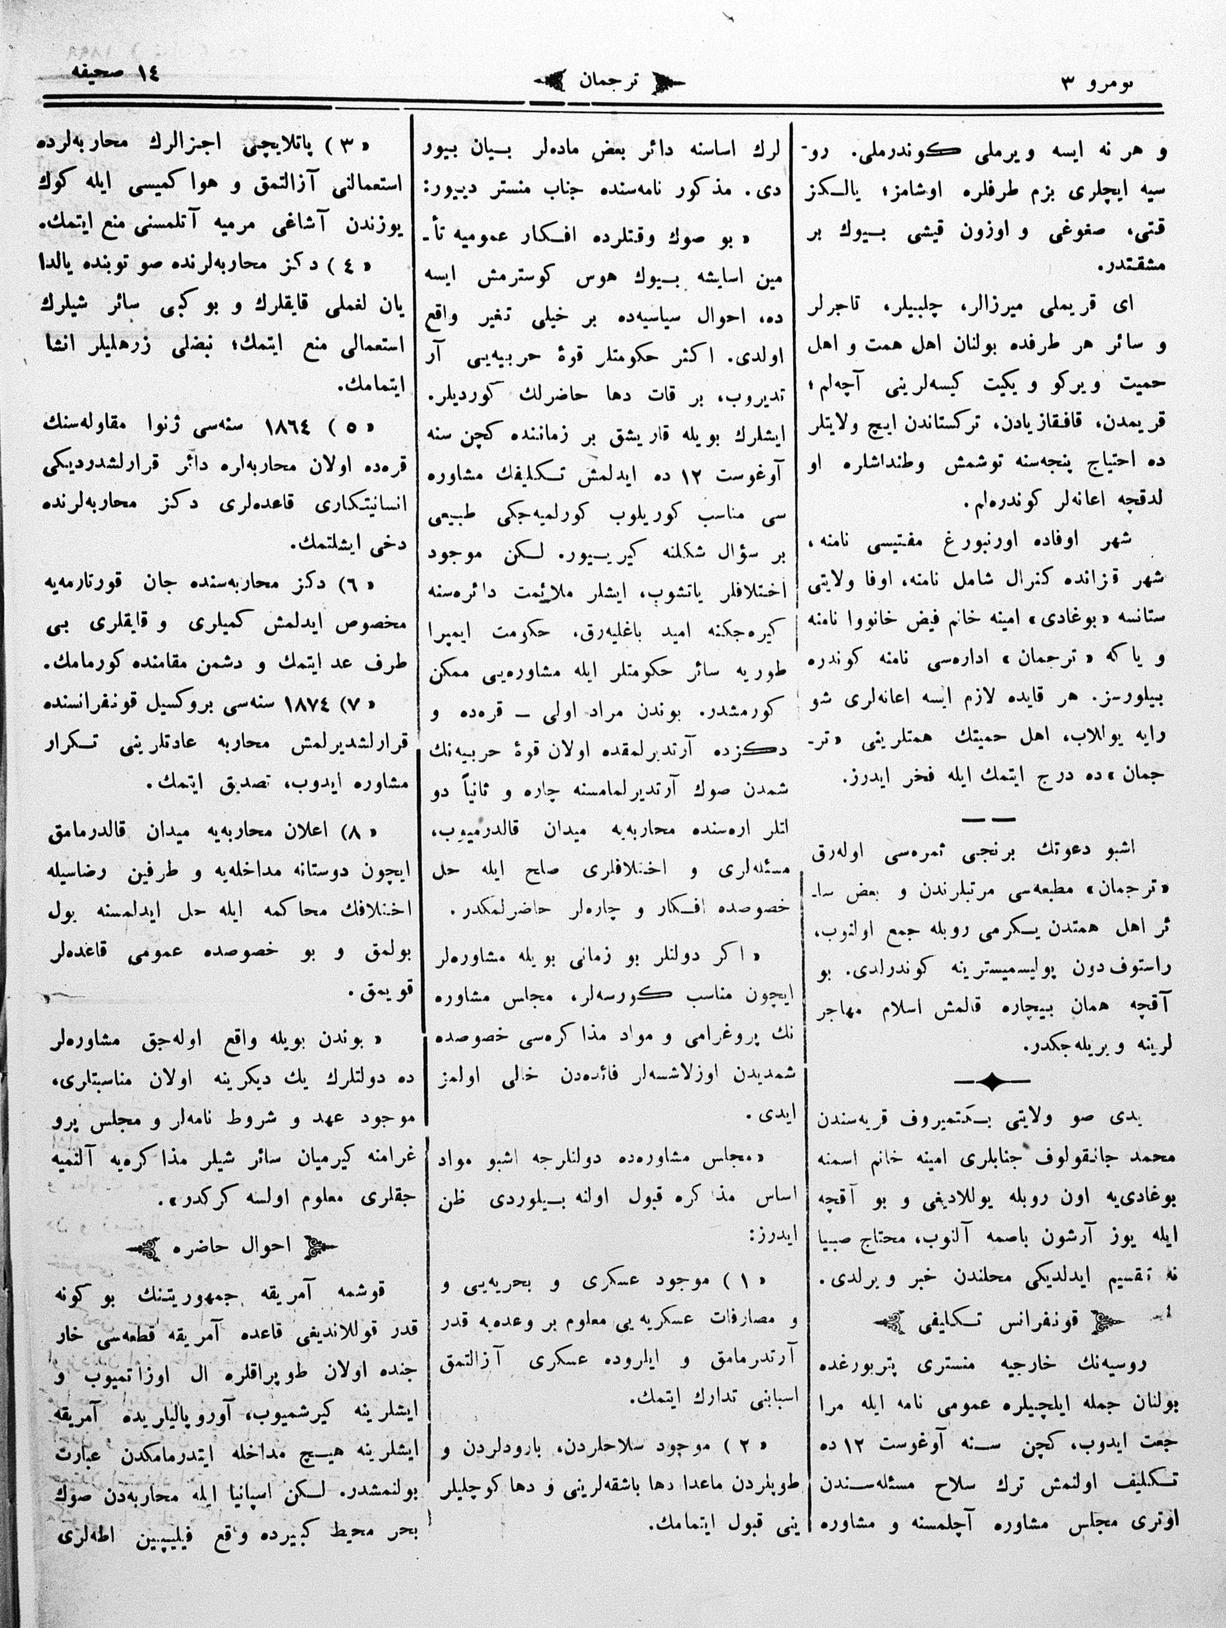 نومرو ٣
ترجمان
١٤ صحیفه
و هر نه ایسه ویرملی کوندرملی. رو-
سیه ایچلری بزم طرفلره اوشامز؛ یالکز
قتی، صغوغی و اوزون قیشی بیوك بر
مشقتدر.
ای قریملی میرزالر، چلبیلر، تاجرلر
و سائر هر طرفده بولنان اهل همت و اهل
حمیت ویرکو و یکیت کیسه‌لرینی آچه‌لم؛
قریمدن، قافقازیادن، ترکستاندن ایچ ولایتلر
ده احتیاج پنجه‌سنه توشمش وطنداشلره او
لدقچه اعانه‌لر کوندره‌لم.
شهر اوفاده اورنبورغ مفتیسی نامنه،
شهر قزانده کنرال شامل نامنه، اوفا ولایتی
ستانسه «بوغادی» امینه خانم فیض خانووا نامنه
و یا که «ترجمان» اداره‌سی نامنه کوندره
بیلورسز. هر قایده لازم ایسه اعانه‌لری شو
رایه یوللاب، اهل حمیتك همتلرینی «تر-
جمان»ده درج ایتمك ایله فخر ایدرز.
اشبو دعوتك برنجی ثمره‌سی اوله‌رق
«ترجمان» مطبعه‌سی مرتبلرندن و بعض سا-
ئر اهل همتدن یکرمی روبله جمع اولنوب،
راستوف دون پولیسمیسترینه کوندرلدی. بو
آقچه همان بیچاره قالمش اسلام مهاجر
لرینه ویریله‌جکدر.
یدی صو ولایتی بکتمیروف قریه‌سندن
محمد جانقولوف جنابلری امینه خانم اسمنه
بوغادی‌یه اون روبله یوللادیغی و بو آقچه
ایله یوز آرشون باصمه آلنوب، محتاج صبیا
نه تقسیم ایدلدیکی محلندن خبر ویرلدی.
قونفرانس تکلیفی
روسیه‌نك خارجیه منستری پتربورغده
بولنان جمله ایلچیلره عمومی نامه ایله مرا
جعت ایدوب، کچن سنه آوغوست ١٢ ده
تکلیف اولنمش ترك سلاح مسئله‌سندن
اوتری مجلس مشاوره آچلمسنه و مشاوره
لرك اساسنه دائر بعض ماده‌لر بیان بیور
دی. مذکور نامه‌سنده جناب منستر دییور:
«بو صوك وقتلرده افکار عمومیه تأ-
مین اسایشه بیوك هوس کوسترمش ایسه
ده، احوال سیاسیه‌ده بر خیلی تغیر واقع
اولدی. اکثر حکومتلر قوۀ حربیه‌یی آر
تدیروب، بر قات دها حاضرلك کوردیلر.
ایشلرك بویله قاریشق بر زماننده کچن سنه
آوغوست ١٢ ده ایدلمش تکلیفك مشاوره
سی مناسب کوریلوب کورلمیه‌جکی طبیعی
بر سؤال شکلنه کیریور. لکن موجود
اختلافلر یاتشوب، ایشلر ملائمت دائره‌سنه
کیره‌جکنه امید باغلیه‌رق، حکومت ایمپرا
طوریه سائر حکومتلر ایله مشاوره‌یی ممکن
کورمشدر. بوندن مراد اولی ـ قره‌ده و
دکزده آرتدیرلمقده اولان قوۀ حربیه‌نك
شمدن صوك آرتدیرلمامسنه چاره و ثانیاً دو
لتلر اره‌سنده محاربه‌یه میدان قالدرمیوب،
مسئله‌لری و اختلافلری صلح ایله حل
خصوصده افکار و چاره‌لر حاضرلمکدر.
«اکر دولتلر بو زمانی بویله مشاوره‌لر
ایچون مناسب کورسه‌لر، مجلس مشاوره
نك پروغرامی و مواد مذاکره‌سی خصوصده
شمدیدن اوزلاشسه‌لر فائده‌دن خالی اولمز
ایدی.
«مجلس مشاوره‌ده دولتلرجه اشبو مواد
اساس مذاکره قبول اولنه بیلوردی ظن
ایدرز:
«١) موجود عسکری و بحریه‌یی و
و مصارفات عسکریه‌یی معلوم بر وعده‌یه قدر
آرتدرمامق و ایلروده عسکری آزالتمق
اسبابنی تدارك ایتمك.
«٢) موجود سلاحلردن، بارودلردن و
طوبلردن ماعدا دها باشقه‌لرینی و دها کوچلیلر
ینی قبول ایتمامك.
«٣) پاتلایچی اجزالرك محاربه‌لرده
استعمالنی آزالتمق و هوا کمیسی ایله کوك
یوزندن آشاغی مرمیه آتلمسنی منع ایتمك.
«٤) دکز محاربه‌لرنده صو توبنده یالدا
یان لغملی قایقلرك و بو کبی سائر شیلرك
استعمالی منع ایتمك؛ نبضلی زرهلیلر انشا
ایتمامك.
«٥) ١٨٦٤ سنه‌سی ژنوا مقاوله‌سنك
قره‌ده اولان محاربه‌لره دائر قرارلشدردیکی
انسانیتکاری قاعده‌لری دکز محاربه‌لرنده
دخی ایشلتمك.
«٦) دکز محاربه‌سنده جان قورتارمه‌یه
مخصوص ایدلمش کمیلری و قایقلری بی
طرف عد ایتمك و دشمن مقامنده کورمامك.
«٧) ١٨٧٤ سنه‌سی بروکسیل قونفرانسنده
قرارلشدیرلمش محاربه عادتلرینی تکرار
مشاوره ایدوب، تصدیق ایتمك.
«٨) اعلان محاربه‌یه میدان قالدرمامق
ایچون دوستانه مداخله‌یه و طرفین رضاسیله
اختلافك محاکمه ایله حل ایدلمسنه یول
بولمق و بو خصوصده عمومی قاعده‌لر
قویمق.
«بوندن بویله واقع اوله‌جق مشاوره‌لر
ده دولتلرك یك دیکرینه اولان مناسبتلری،
موجود عهد و شروط نامه‌لر و مجلس پرو
غرامنه کیرمیان سائر شیلر مذاکره‌یه آلنمیه
جقلری معلوم اولسه کرکدر».
احوال حاضره
قوشمه آمریقه جمهوریتنك بو کونه
قدر قوللاندیغی قاعده آمریقه قطعه‌سی خار
جنده اولان طوپراقلره ال اوزاتمیوب و
ایشلرینه کیرشمیوب، آوروپالیلریده آمریقه
ایشلرینه هیچ مداخله ایتدرمامکدن عبارت
بولنمشدر. لکن اسپانیا ایله محاربه‌دن صوك
بحر محیط کبیرده واقع فیلیپین اطه‌لری